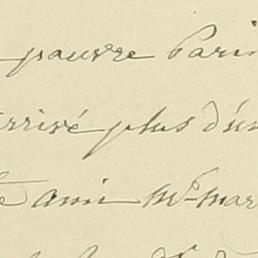 pauvre Parin
rrivé plus d'un
ami Mr Mar